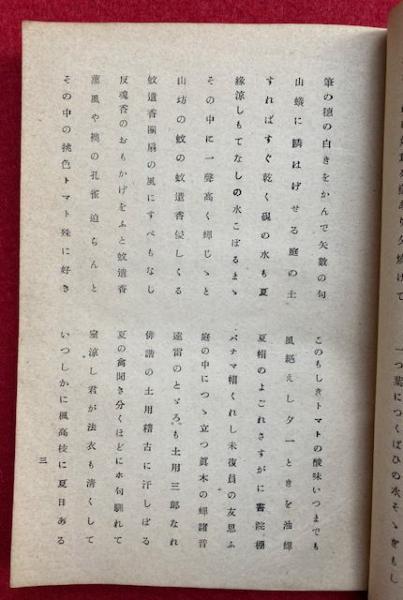 一つ葉につくばひの水そゝぎもし
筆の穂の白きをかんで矢数の句
山蟻に鱗はげせる庭の土
すればすぐ乾く硯の水も夏
縁涼しもてなしの水こぼるまゝ
その中に一聲高く蟬じゝと
山坊の蚊の蚊遣香侵しくる
蚊遣香團扇の風にすべもなし
反魂香のおもかげをふと蚊遣香
薫風や襖の孔雀迫らんと
その中の桃色トマト殊に好き
このもしきトマトの酸味いつまでも
風絶えし夕一ときを油蟬
夏帽のよごれさすがに書院棚
パナマ帽くれし未復員の友思ふ
庭の中につゝ立つ眞木の蟬諸音
遠雷のとゞろも土用三郎なれ
俳諧の土用稽古に汗しぼる
夏の禽聞き分くほどにホ句馴れて
室涼し君が法衣も清くして
いつしかに楓高枝に夏日ある
三